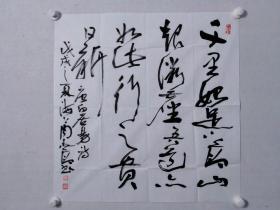 千里始足下高山
起微塵吾道亦
如此行之贵
日新 唐白居易诗
戊戌之夏